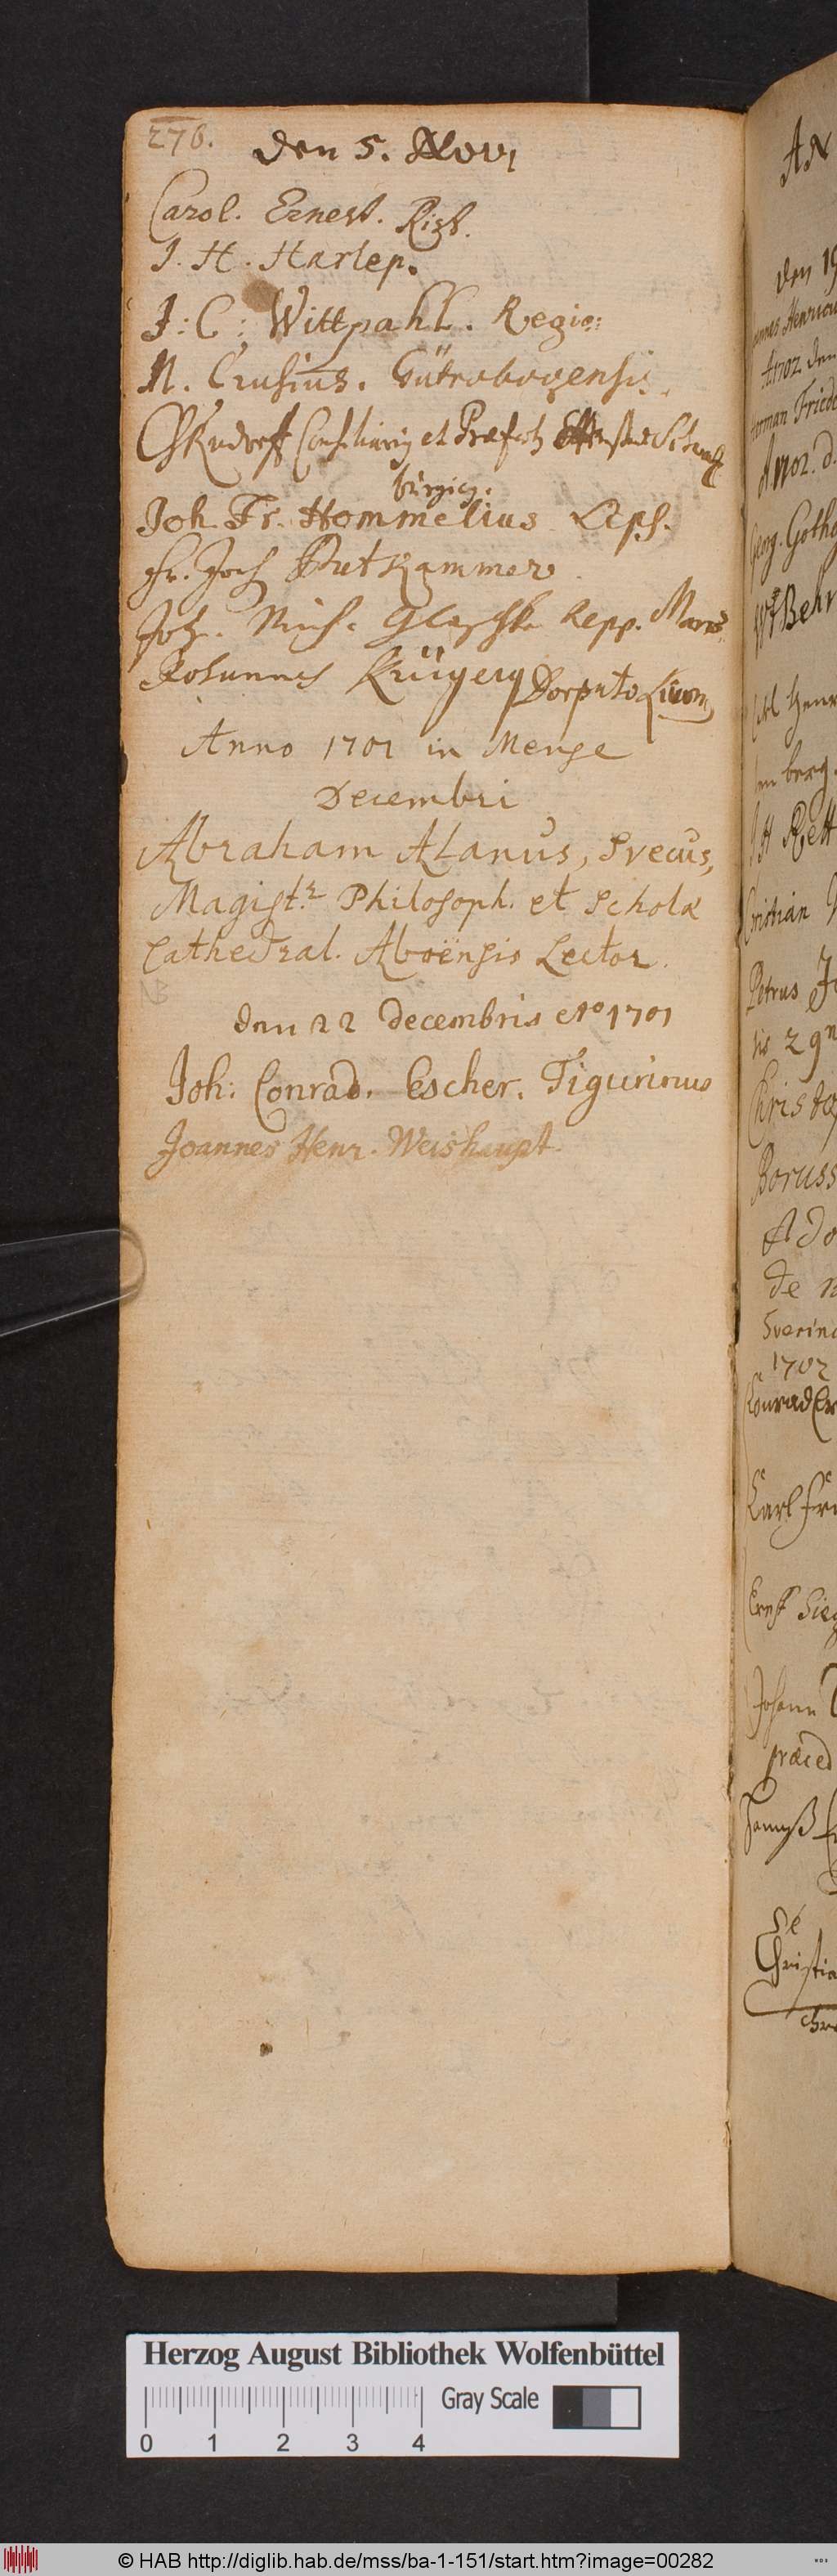 276.
den 5. Nov,
Carol. Ernest. Rist.
J. H. Harlep.
J: C: Wittpahl. Regio:
M. Crusius. Gütrobogensis.
et Præfect
burgicg.
Joh. Fr. Hommelius Lips.
Fr. Joch Putkammer
Joh. Mich. Repp. March.
Johannes Krügerg Dorpato Livon,
Anno 1701 in Mense
Decembri
Abraham Alanus, Svecus,
Magist.r Philosoph. et Scholæ
Cathedral. Aboënsis Lector.
NB
den 22 decembris Ao 1701
Joh: Conrad. Escher. Tigurinus
Joannes Henr. Weishaupt.
AN
den 19
A1702 den
Herman Fried
Ano2. d.
Georg. Gotho
Behr
Carl Henr
berg.
Cristian
Petrus
Christo
Boruss
Ado
de
Sverin
1702
Conrad
Carl
Ernst
Johann
præced
De
Christia
Herzog August Bibliothek Wolfenbüttel
Gray Scale
0 1 2 3 4
© HAB http://diglib.hab.de/mss/ba-1-151/start.htm?image=00282